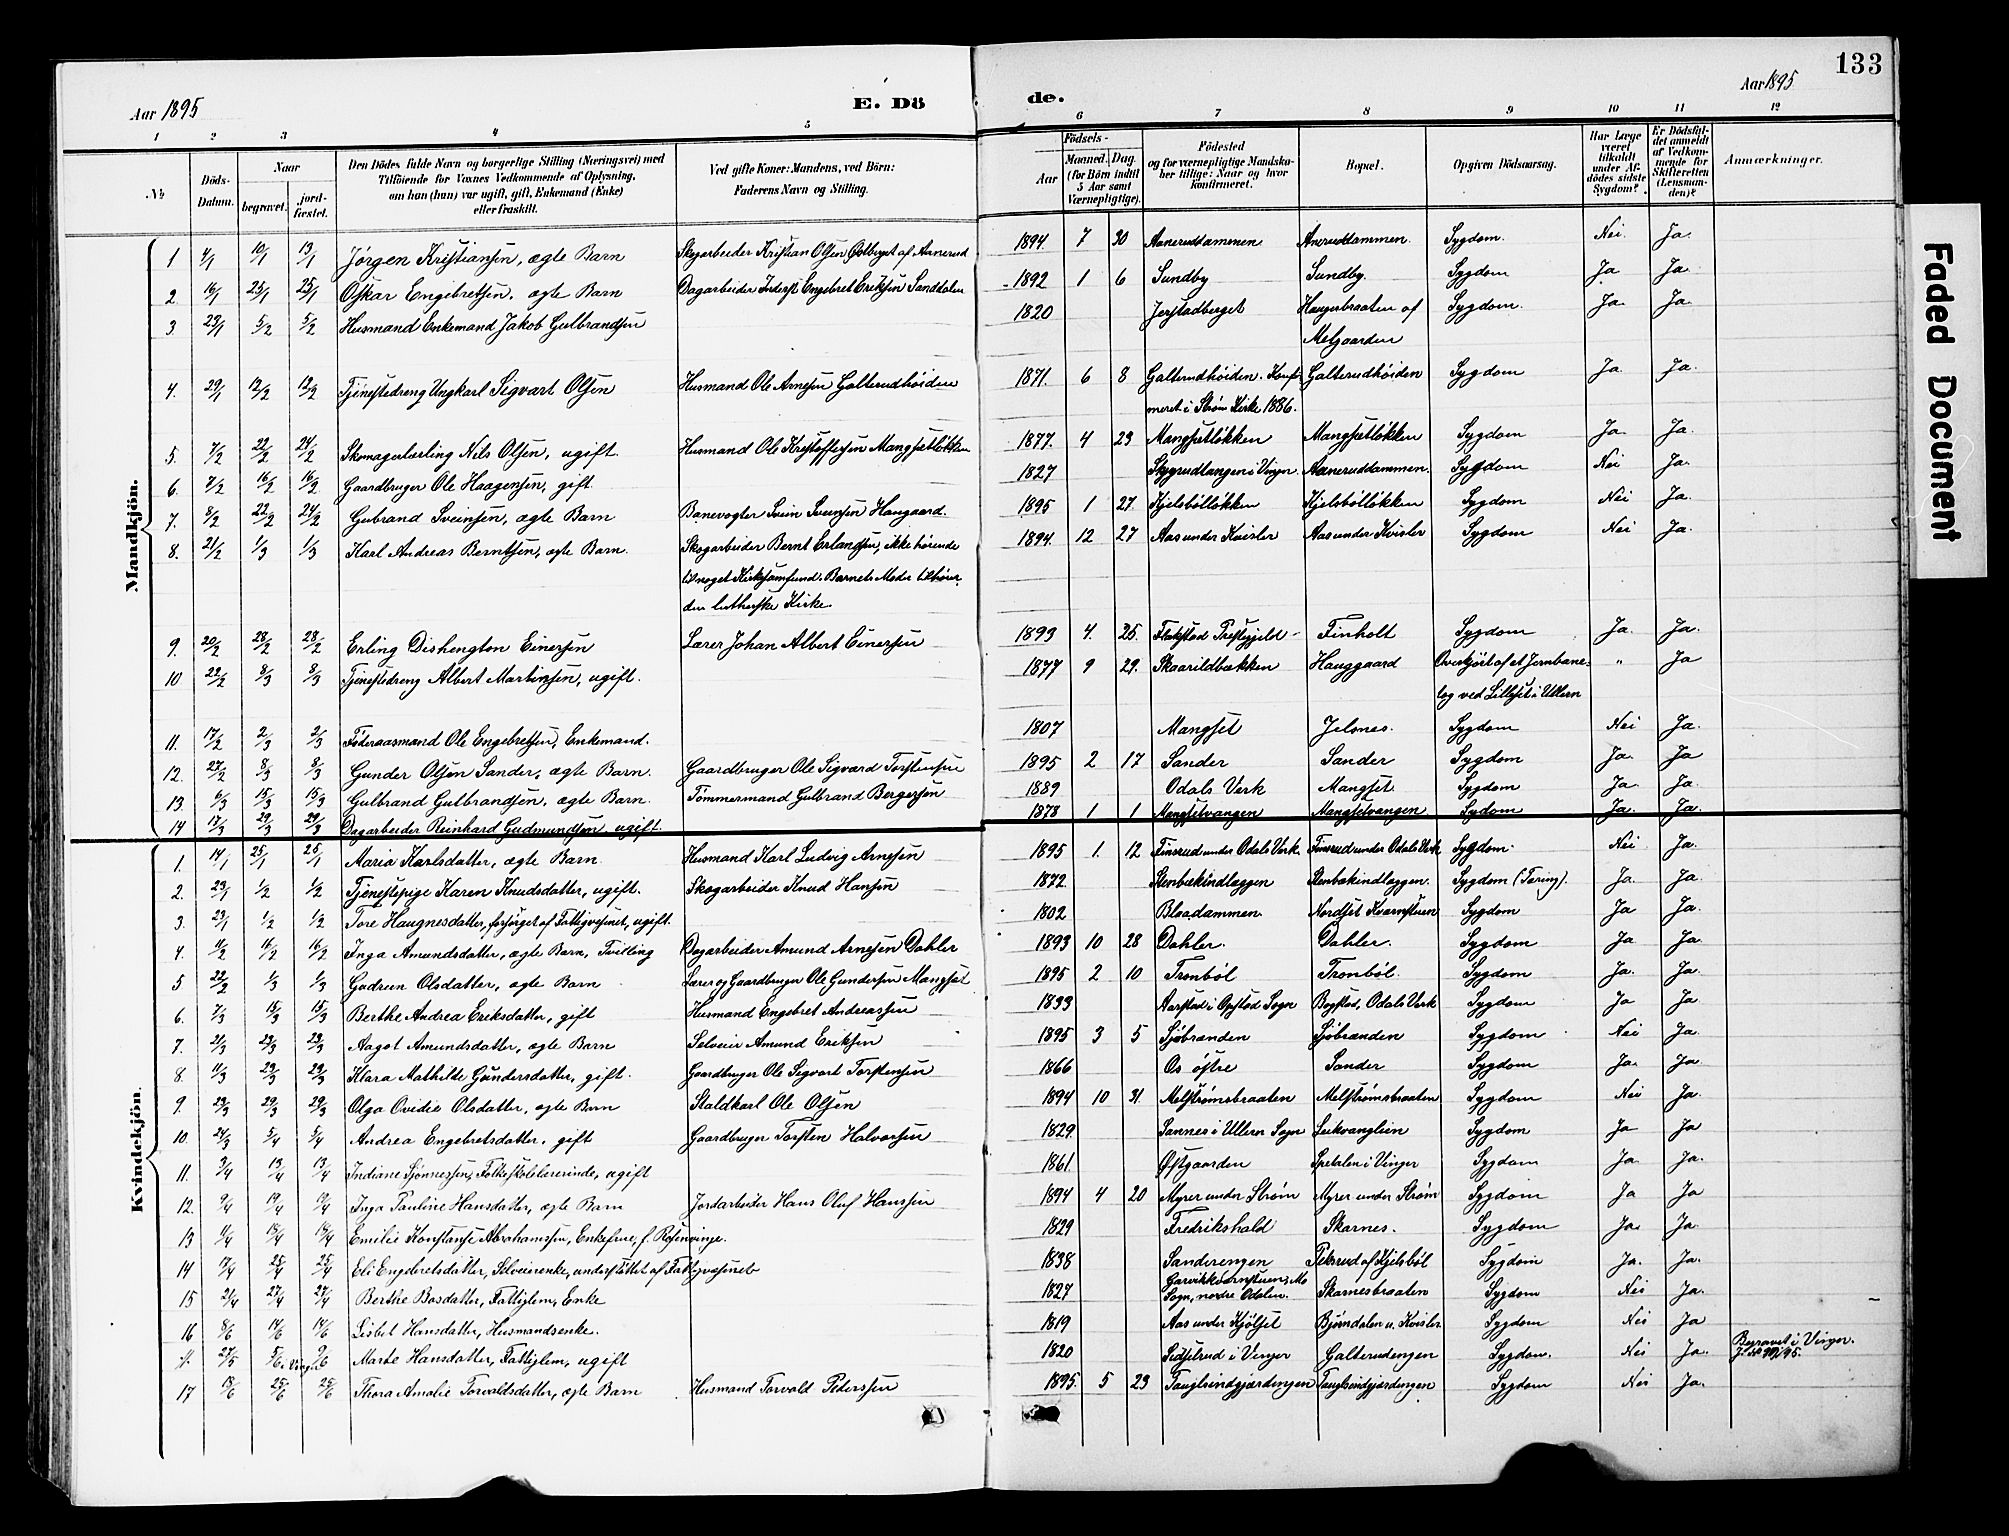 133
Aar 1895
E. Dö
de.
Aar 1895
1 2 3 4 5 6 7 8 9 10 11 12
№
Döds-Datum.
Naar
begravet.
jord-fæstet.
Den Dödes fulde Navn og borgerlige Stilling (Næringsvei) med
Tilföiende for Voxnes Vedkommende af Oplysning,
om han (hun) var ugift, gift, Enkemand (Enke)
eller fraskilt.
Ved gifte Koner: Mandens, ved Börn:
Faderens Navn og Stilling.
Födsels-
Aar
Maaned. Dag.
(for Börn indtil
5 Aar samt
Værnepligtige).
Födested
og for værnepligtige Mandska-
ber tillige: Naar og hvor
konfirmeret.
Bopæl.
Opgiven Dödsaarsag.
Har Læge
været
tilkaldt
under Af-
dödes sidste
Sygdom?
Er Dödsfal-
det anmeldt
af Vedkom-
mende for
Skifteretten
(Lensman-
den)?
Anmærkninger.
Mandkjön.
1 4/1 10/1 13/1 Jørgen Kristiansen, ægte Barn Skogarbeider Kristian Olsen af Aanerud 1894 7 30 Aaneruddammen Aneruddammen Sygdom. Nei. Ja.
2 16/1 25/1 25/1 Oskar Engebretsen, ægte Barn Dagarbeider Inderst Engebret Eriksen Sanddalen 1892 1 6 Sundby Sundby. Sygdom Ja Ja
3 23/1 5/2 5/2 Husmand Enkemand Jakob Gulbrandsen 1820 Jerstadberget Haugerbraaten af Sygdom Ja Ja
Melgaarden
4. 29/1 12/2 12/2 Tjenestedreng Ungkarl Sigvart Olsen Husmand Ole Arnesen Galterudhøiden 1871. 6 8 Galterudhøiden. Konfir- Galterudhøiden Sygdom Ja Ja.
meret i Strøm Kirke 1886.
5. 7/2 22/2 24/2 Skomagerlærling Nils Olsen, ugift Husmand Ole Kristoffersen Mangsetløkken 1877. 4 23 Mangsetløkken Mangsetløkken Sygdom Ja. Ja.
6. 7/2 16/2 16/2 Gaardbruger Ole Haagensen, gift 1827 i Vinger. Aaneruddammen. Sygdom Nei Ja.
7. 8/2 22/2 24/2 Gubrand Sveinsen, ægte Barn Banevogter Svein Sveinsen Haugaard. 1895 1 27. Kjelsbølløkken Kjelsbølløkken Sygdom Nei Ja.
8. 21/2 1/3 1/3 Karl Andreas Berntsen, ægte Barn. Skogarbeider Bernt Erlandsen, ikke hørende 1894. 12 27 Aas under Kvisler Aas under Kvisler Sygdom Nei Ja.
til noget Kirkesamfund. Barnets Moder tilhører
den lutherske Kirke.
9. 20/2 28/2 28/2 Erling Dishengton Einersen Lærer Johan Albert Einersen 1893 4. 25. Flakstad Prestegjeld Finholt Sygdom Ja. Ja.
10 22/2 8/3 8/3 Tjenestedreng Albert Martinsen, ugift. 1877 9 29. Skaarildbakken Hauggaard Overkjørt af et Jernbane- " Ja
tog ved Lillset i Ullern
11. 17/2 2/3 2/3 Føderaasmand Ole Engebretsen, Enkemand. 1807 Mangset Jelsnes. Sygdom Nei Ja.
12. 27/2 8/3 8/3 Gunder Olsen Sander, ægte Barn. Gaardbruger Ole Sigvard Torstensen 1895 2 17 Sander Sander Sygdom Ja. Ja
13 6/3 15/3 15/3 Gulbrand Gulbrandsen, ægte Barn. Tømmermand Gulbrand Bergersen 1889 Odals Verk Mangset Sygdom Ja Ja.
14 17/3 29/3 29/3 Dagarbeider Reinhard Gudmundsen ugift. 1878 1 1 Mangsetvangen Mangsetvangen Sydom Ja. Ja.
Kvindekjön.
1. 14/1 25/1 25/1 Maria Karlsdatter, ægte Barn Husmand Karl Ludvig Arnesen 1895 1. 12 Finsrud under Odals Verk. Finsrud under Odals Verk Sygdom. Nei Ja.
2. 23/1 1/2 1/2 Tjenestepige Karen Knudsdatter, ugift. Skogarbeider Knud Hansen 1872. Stenbækindlæggen Stenbækindlæggen. Sygdom (Tæring). Ja Ja.
3. 23/1 1/2 1/2 Tore Haugnesdatter, forsørget af Fattigvesenet, ugift. 1802 Blaadammen. Nordset Kværnstuen Sygdom Ja Ja.
4. 4/2 16/2 16/2 Inga Amundsdatter, ægte Barn, Tvilling Dagarbeider Amund Arnesen Dahler 1893 10 28 Dahler. Dahler. Sygdom Ja Ja.
5 22/2 1/3 1/3 Gudrun Olsdatter, ægte Barn Lærer og Gaardbruger Ole Gundersen Mangset 1895 2 10 Tronbøl Tronbøl. Sygdom Ja. Ja.
6. 7/3 15/3 15/3 Berthe Andrea Eriksdatter, gift Husmand Engebret Andreassen 1833 Aarstad i Opstad Sogn Bogstad, Odals Verk Sygdom Ja Ja.
7. 21/3 23/3 23/3 Aagot Amundsdatter, ægte Barn Selveier Amund Eriksen 1895 3 5 Sjøbranden Sjøbranden Sygdom Nei Ja.
8. 11/3 29/3 29/3 Klara Mathilde Gundersdatter, gift. Gaardbruger Ole Sigvart Torstensen 1866 Os østre Sander Sygdom Ja. Ja
9. 23/3 29/3 29/3 Olga Ovidie Olsdatter, ægte Barn Staldkarl Ole Olsen 1894 10 31. Melstrømsbraaten Melstrømsbraaten Sygdom Nei Ja.
10. 24/3 5/4 5/4 Andrea Engebretsdatter, gift Gaardbruger Torsten Halvorsen 1829. Sannes i Ullern Sogn Leikvanglien Sygdom Ja Ja
11. 3/4 13/4 13/4 Indiane Tjønnessen, Folkeskolelærerinde, ugift 1861. Østgaarden i Vinger Sygdom Ja Ja.
12. 9/4 19/4 19/4 Inga Pauline Hansdatter, ægte Barn Jordarbeider Hans Oluf Hanssen 1894 4 20 Myrer under Strøm Myrer under Strøm Sygdom Ja Ja
13 11/4 18/4 18/4 Emilie Konstanse Abrahamssen, Enkefrue, f. Rosenvinge. 1829 Fredrikshald Skarnes. Sygdom Ja. Ja.
14 17/4 25/4 25/4 Eli Engebretsdatter, Selveierenke, understøttet af Fattigvæsenet 1838 Sanderengen af Kjelsbøl Sygdom Ja. Ja.
15 21/4 27/4 27/4 Berthe Bosdatter, Fattiglem, Enke 1827 Mo Sogn, nordre Odalen. Skarnesbraaten Sygdom Nei Ja.
16 8/6 14/6 14/6 Lisbet Hansdatter, Husmandsenke. 1819 Aas under Kjølset Bjørndalen u. Kvisler Sygdom Nei Ja
27/5 5/6 i Vinger Marte Hansdatter, Fattiglem, ugift 1820 i Vinger Galterudengen Sygdom. Nei Ja. Begravet i Vinger.
17 18/6 25/6 25/6 Thora Amalie Torvaldsdatter, ægte Barn Husmand Torvald Pederssen 1895. 5 23 Sygdom Nei Ja.
Faded Document